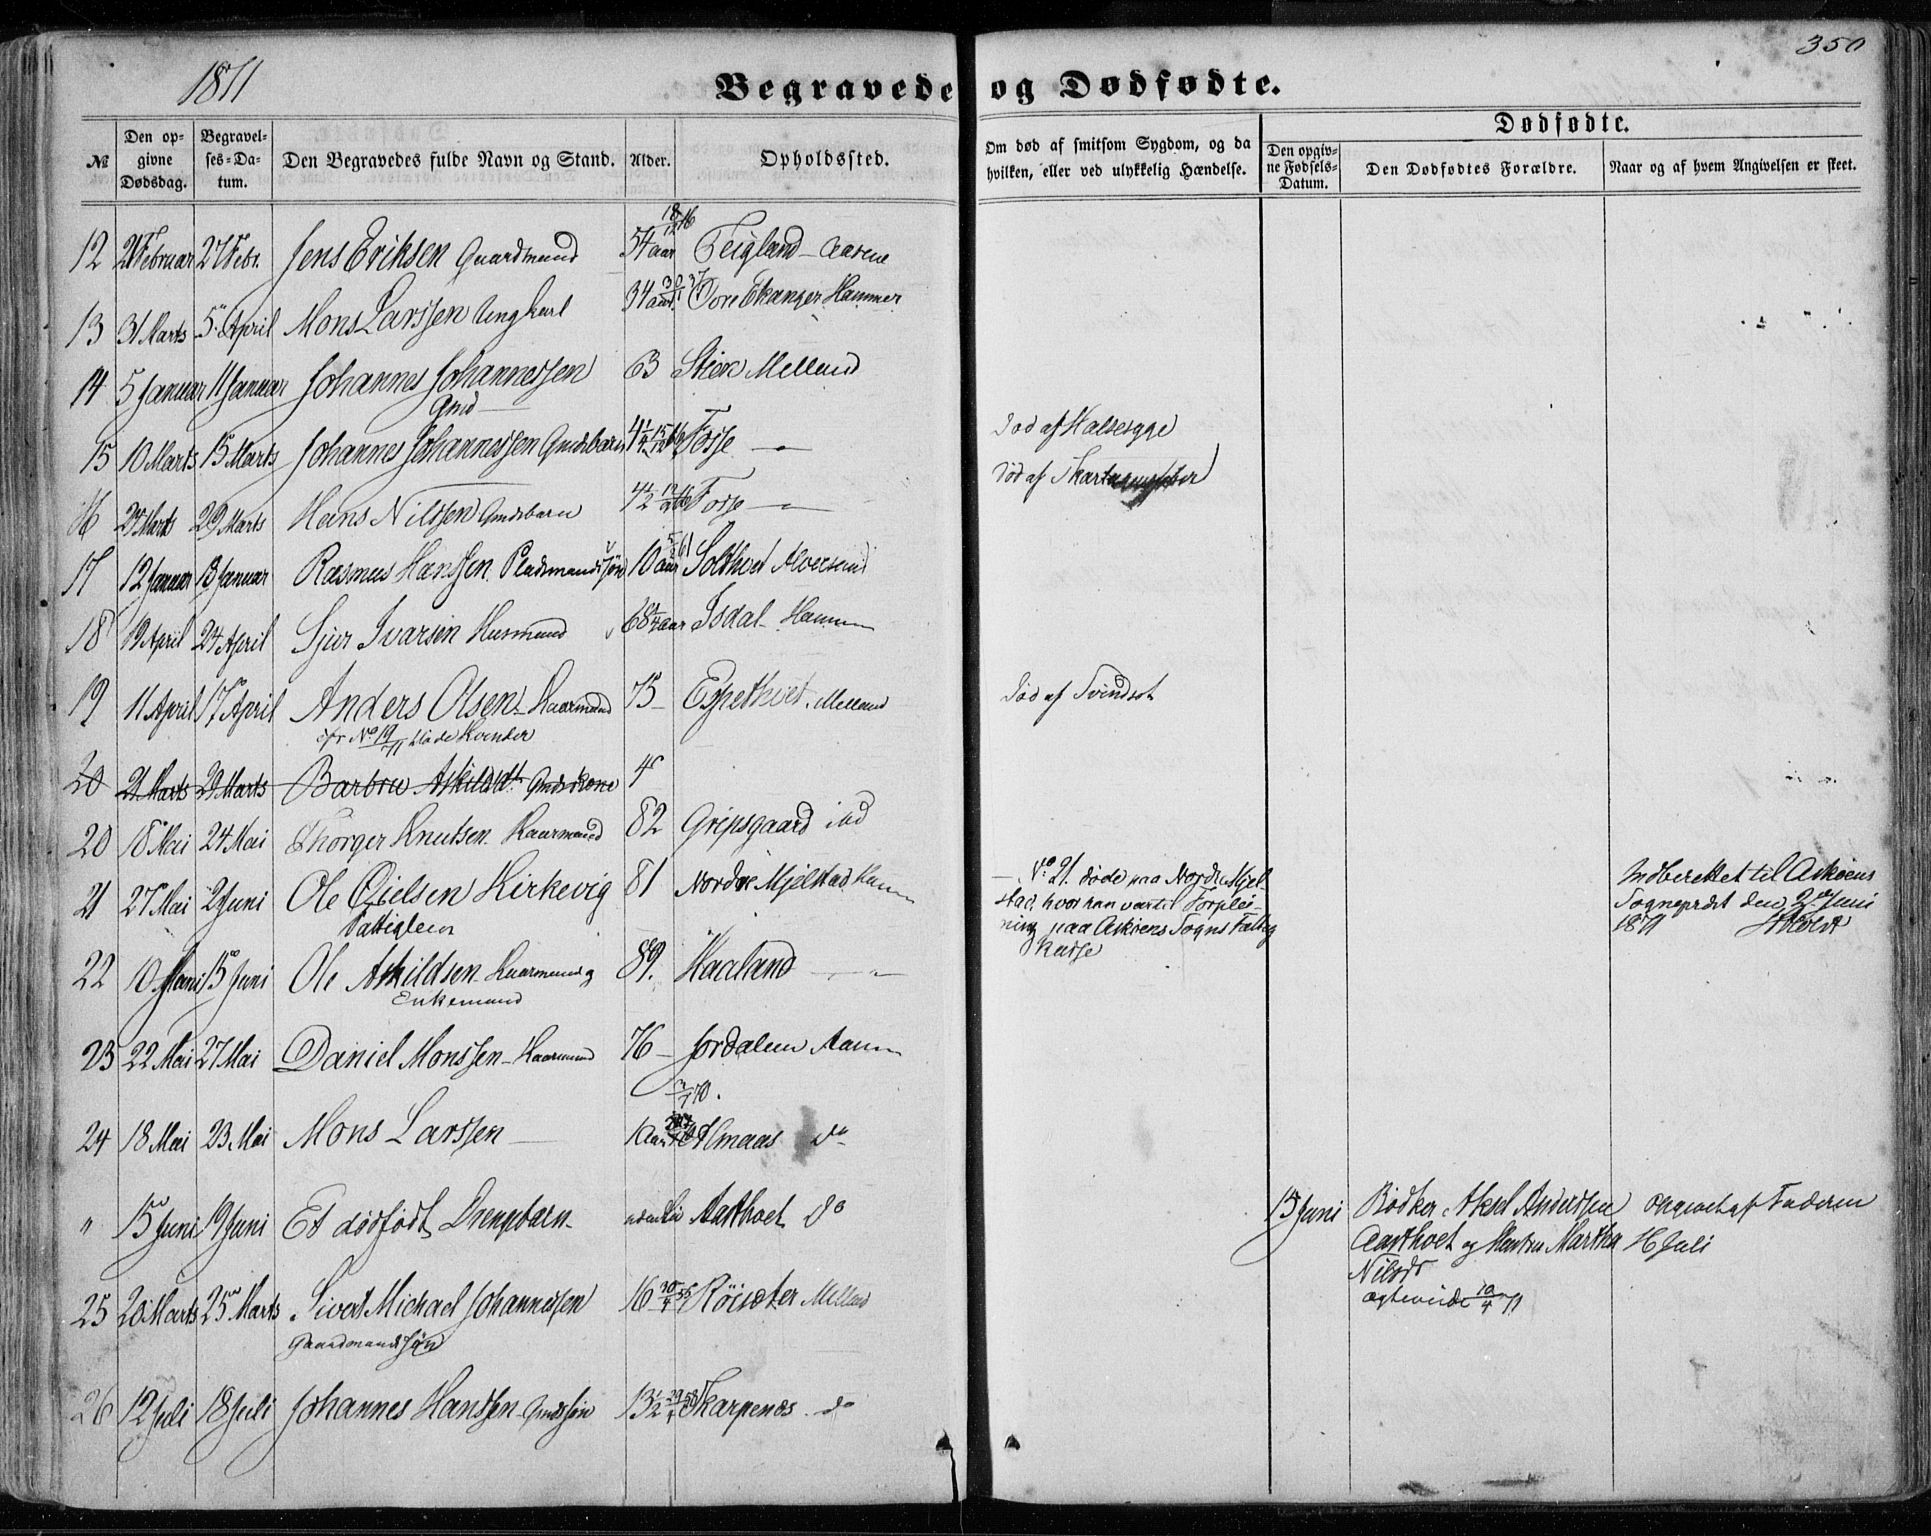 1871
350
Begravede og Dødfødte.
№
Den opgivne Dødsdag.
Begravelses-Datum.
Den Begravedes fulde Navn og Stand.
Alder.
Opholdssted.
Om død af smitsom Sygdom, og da hvilken, eller ved ulykkelig Hændelse.
Dødfødte.
Den opgivne Fødsels-Datum.
Den Dødfødtes Forældre.
Naar og af hvem Angivelsen er skeet.
12 21 Februar 27 Febr. Jens Eriksen Gaardmand 54 aar Feigland
13 31 Marts 5 April Mons Larssen Ungkarl 34 aar Tore Ekanger Hammer
14 5 Januar 11 Januar Johannes Johannessen 63 Steen Melland
Gmd
15 10 Marts 15 Marts Johannes Johannessen Gmdsbarn Fosse Død af Halsesyge
16 Marts 29 Marts Hans Nilssen Gmdsbarn 4½ Fosse Død af
17 12 Januar 13 Januar Rasmus Hanssen Pladsmandssøn 10 aar Alversund
18 19 April 24 April Sjur Ivarsen Husmand 68 aar Isdal Hammer
19 11 April 17 April Anders Olsen Kaarmand 75 Espethvet Melland Død af Svindsot
cfr No 19/71 døde Kvinder
20 21 Marts 29 Marts Barbru Askildsdt Gmdskone 4
20 18 Mai 24 Mai Thorger Knutsen Kaarmand 82 Gripsgaard
21 27 Mai 2 Juni Ole Nielsen Kirkevig 81 Nordre Mjelstad
Fattiglem
No 21. døde paa Nordre Mjelstad, hvor han var til Forpleining paa Askøens Sogns Fattigkasse
Indberettet til Askøens
Sogneprest den 2 Juni
1871
22 10 15 Juni Ole Askildsen Kaarmand og 89. Haaland
Enkemand
23 22 Mai 27 Mai Daniel Monssen Kaarmand 76 Jordalen
24 18 Mai 23 Mai Mons Larssen 1 Aar Almaas do
" 15 Juni 19 Juni Et dødfødt Drengebarn Aasthvet do
15 Juni Bødker Aksel Anderssen
Aasthvet og Hustru Martha
Nilsdt
Faderen
Juli
25 20 Marts 25 Marts Sivert Michael Johannessen 16 Melland
Gaardmandssøn
26 12 Juli 18 Juli Johannes Hanssen Gmdssøn 13½ Skarpenæs do